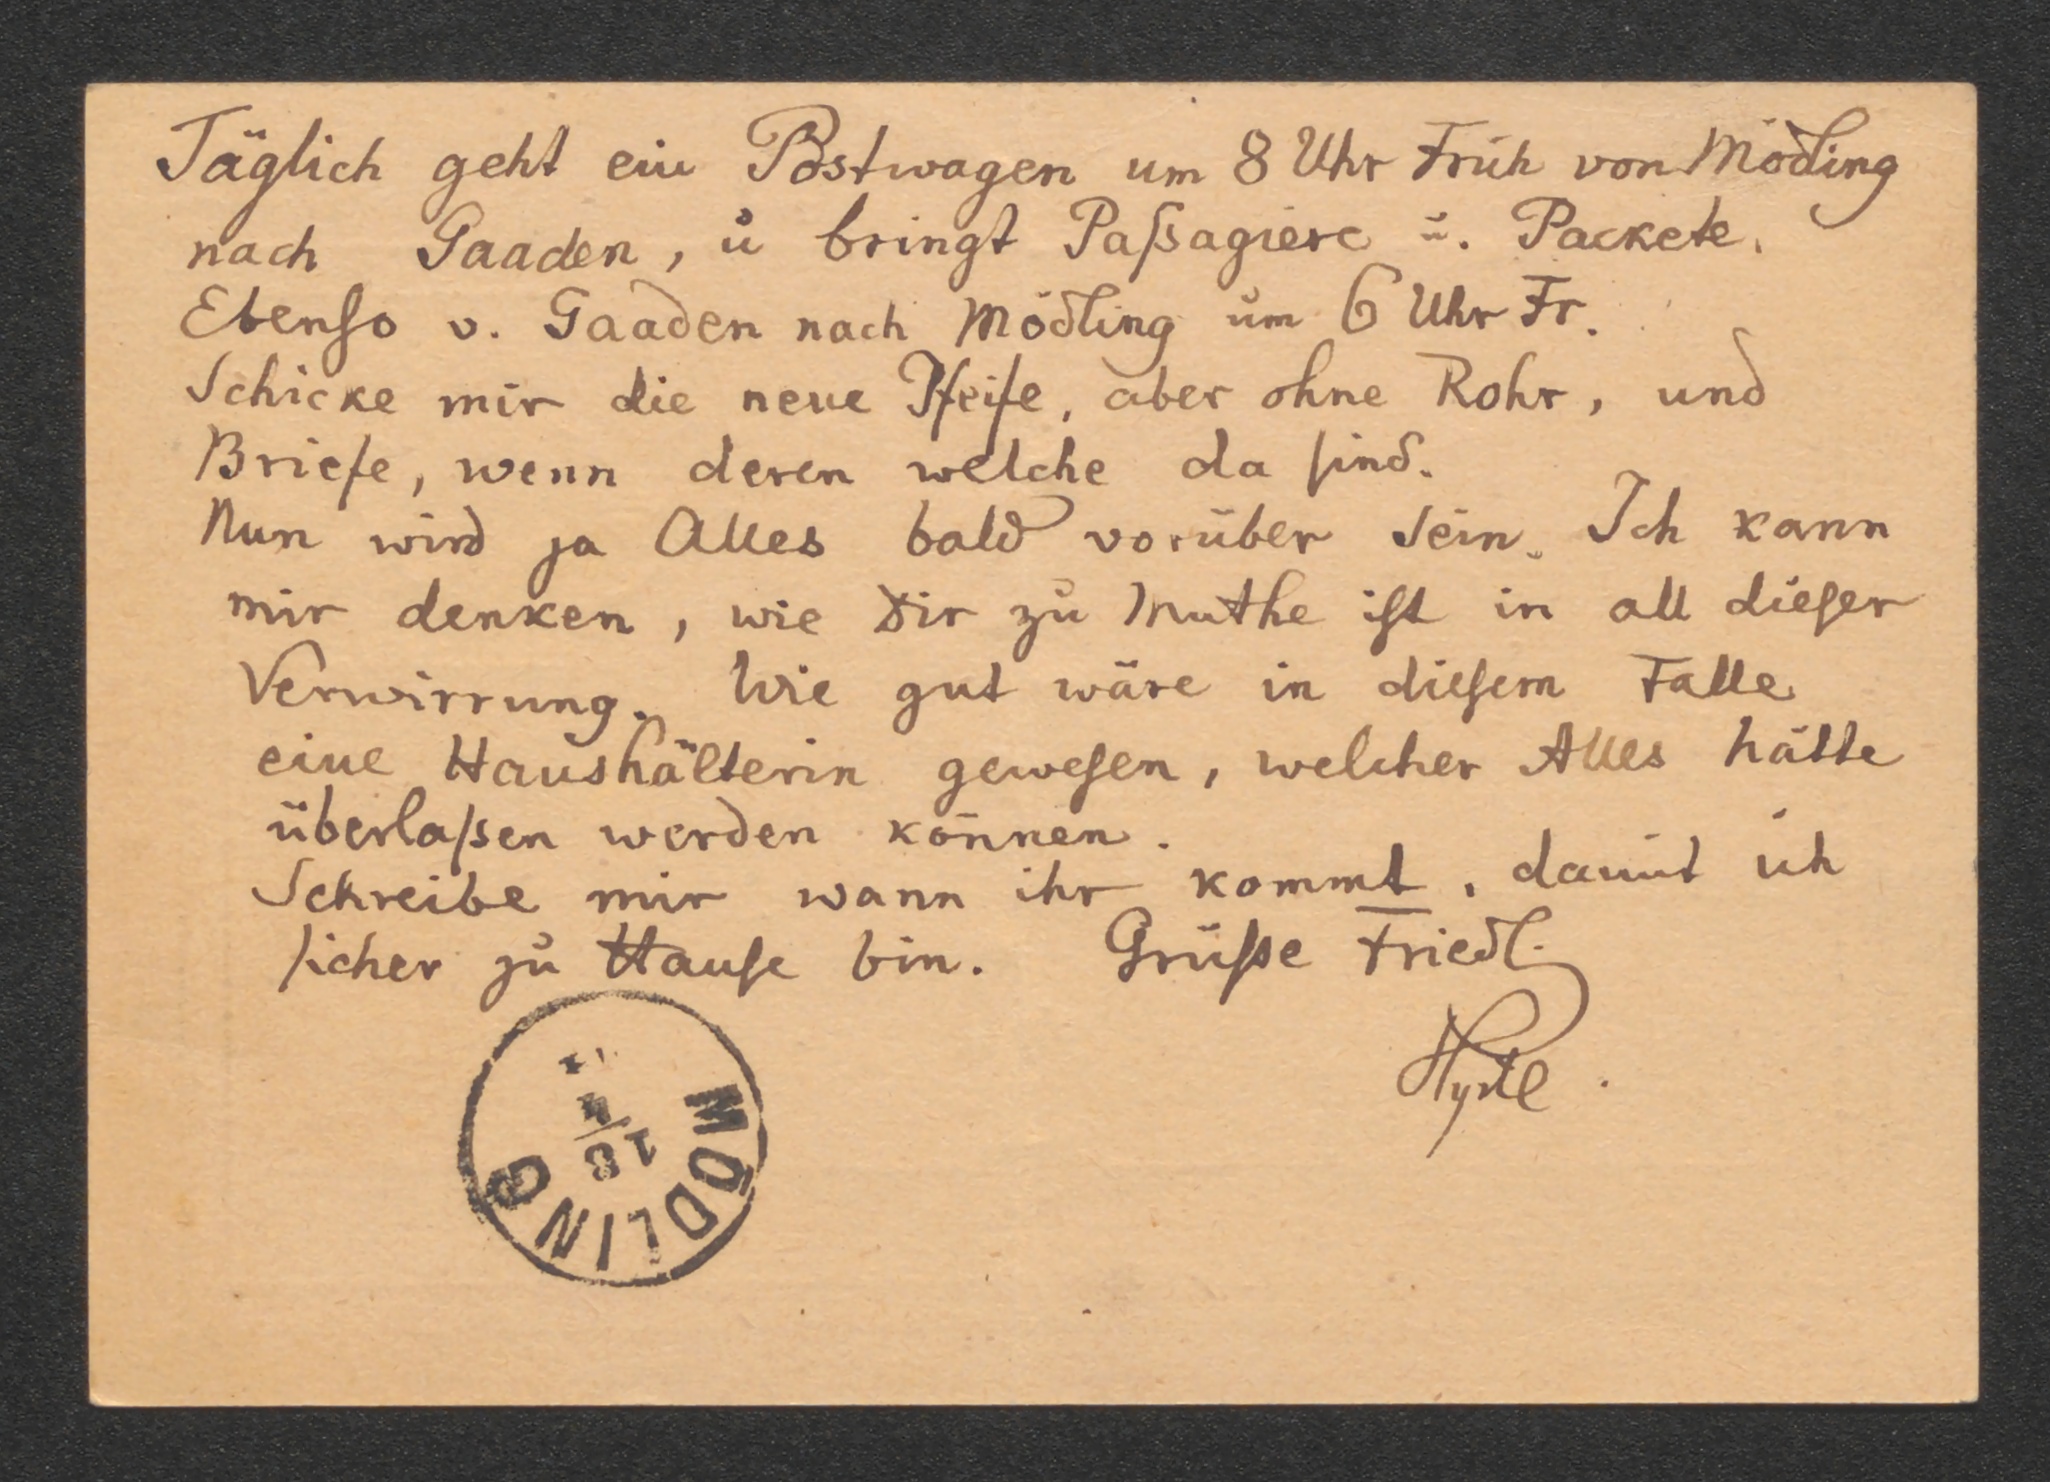 Täglich geht ein Postwagen um 8 Uhr Früh von Mödling
nach Gaaden, u bringt Paßagiere u. Packete.
Ebenso v. Gaaden nach Mödling um 6 Uhr Fr.
Schicke mir die neue Pfeife, aber ohne Rohr, und
Briefe, wenn deren welche da sind.
Nun wird ja Alles bald vorüber sein. Ich kann
mir denken, wie Dir zu Muthe ist in all dieser
Verwirrung. Wie gut wäre in diesem Falle
eine Haushälterin gewesen, welcher Alles hätte
überlaßen werden können.
Schreibe mir wann ihr kommt, damit ich
sicher zu Hause bin. Grüße Friedl.
Hyrtl.
MÖDLING
18
4